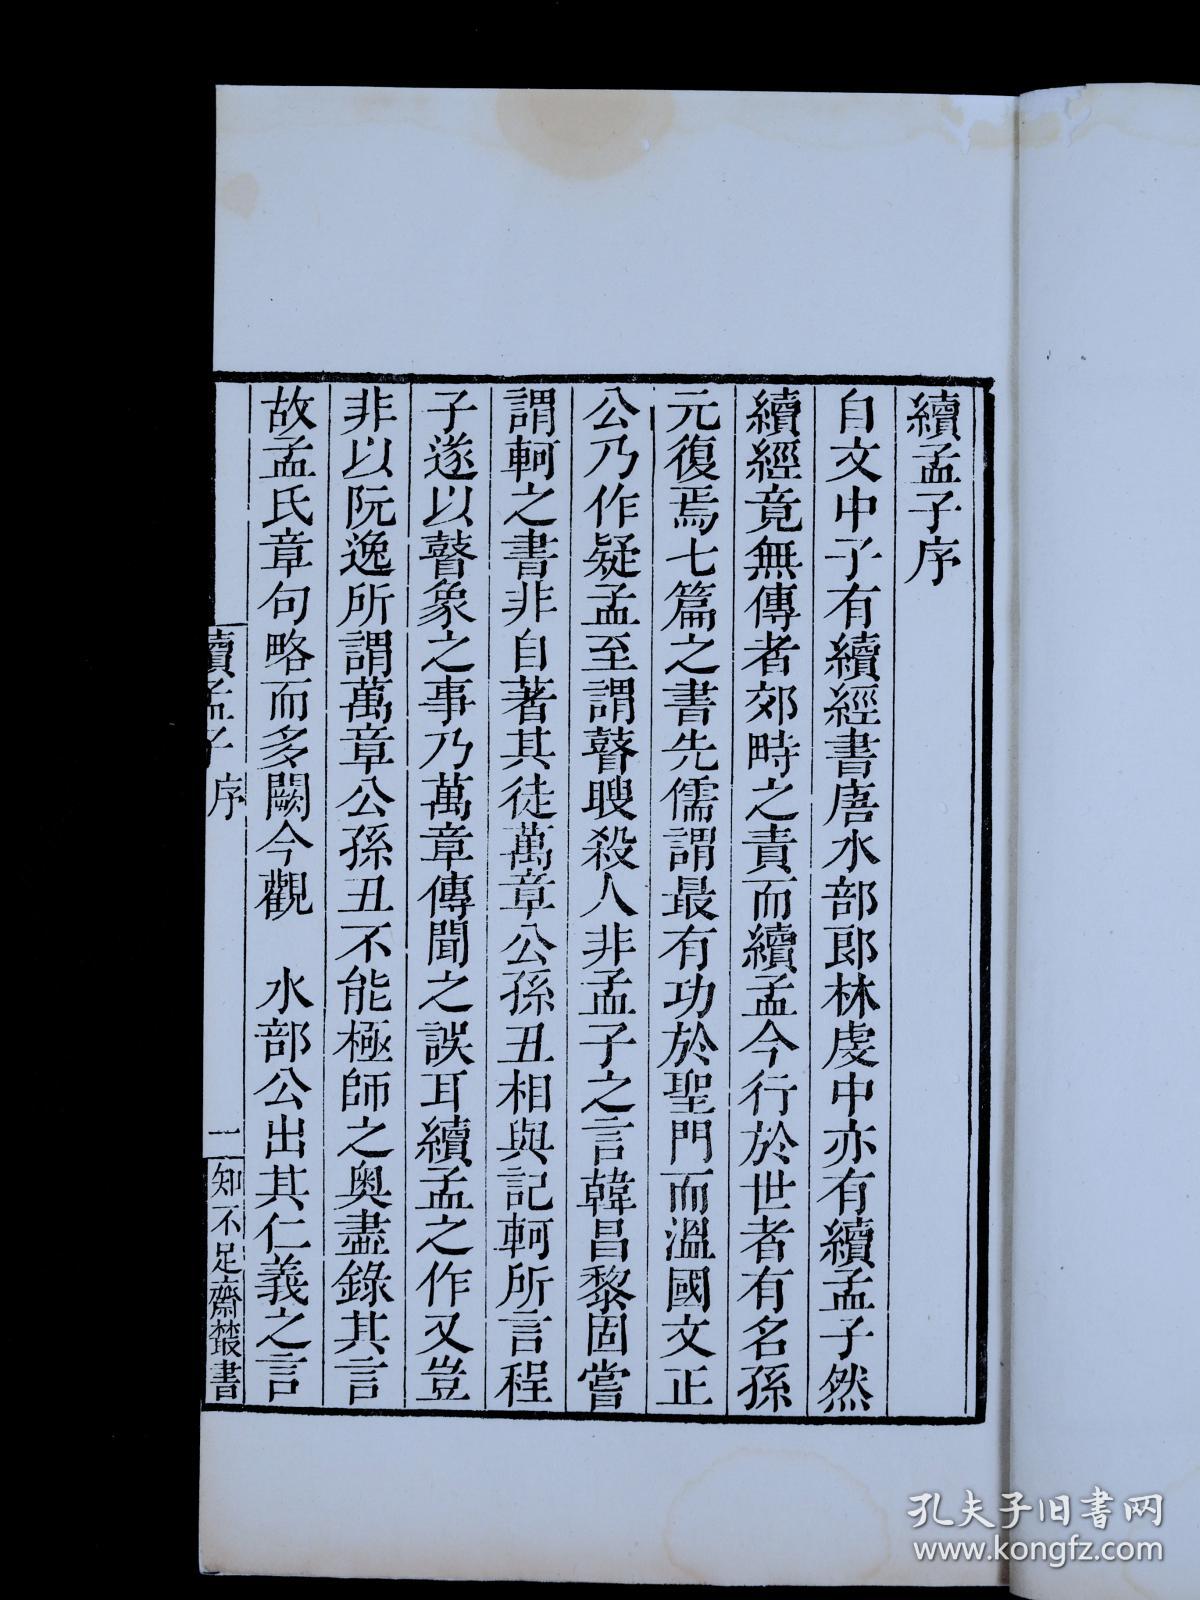 續孟子序
自文中子有續經書唐水部郎林虔中亦有續孟子然
續經竟無傳者郊時之責而續孟今行於世者有名孫
元復焉七篇之書先儒謂最有功於聖門而溫國文正
公乃作疑孟至謂瞽瞍殺人非孟子之言韓昌黎固嘗
謂軻之書非自著其徒萬章公孫丑相與記軻所言程
子遂以瞽象之事乃萬章傳聞之誤耳續孟之作又豈
非以阮逸所謂萬章公孫丑不能極師之奧盡錄其言
故孟氏章句略而多闕今觀　水部公出其仁義之言
續孟子序
一
知不足齋叢書
孔夫子旧书网
www.kongfz.com